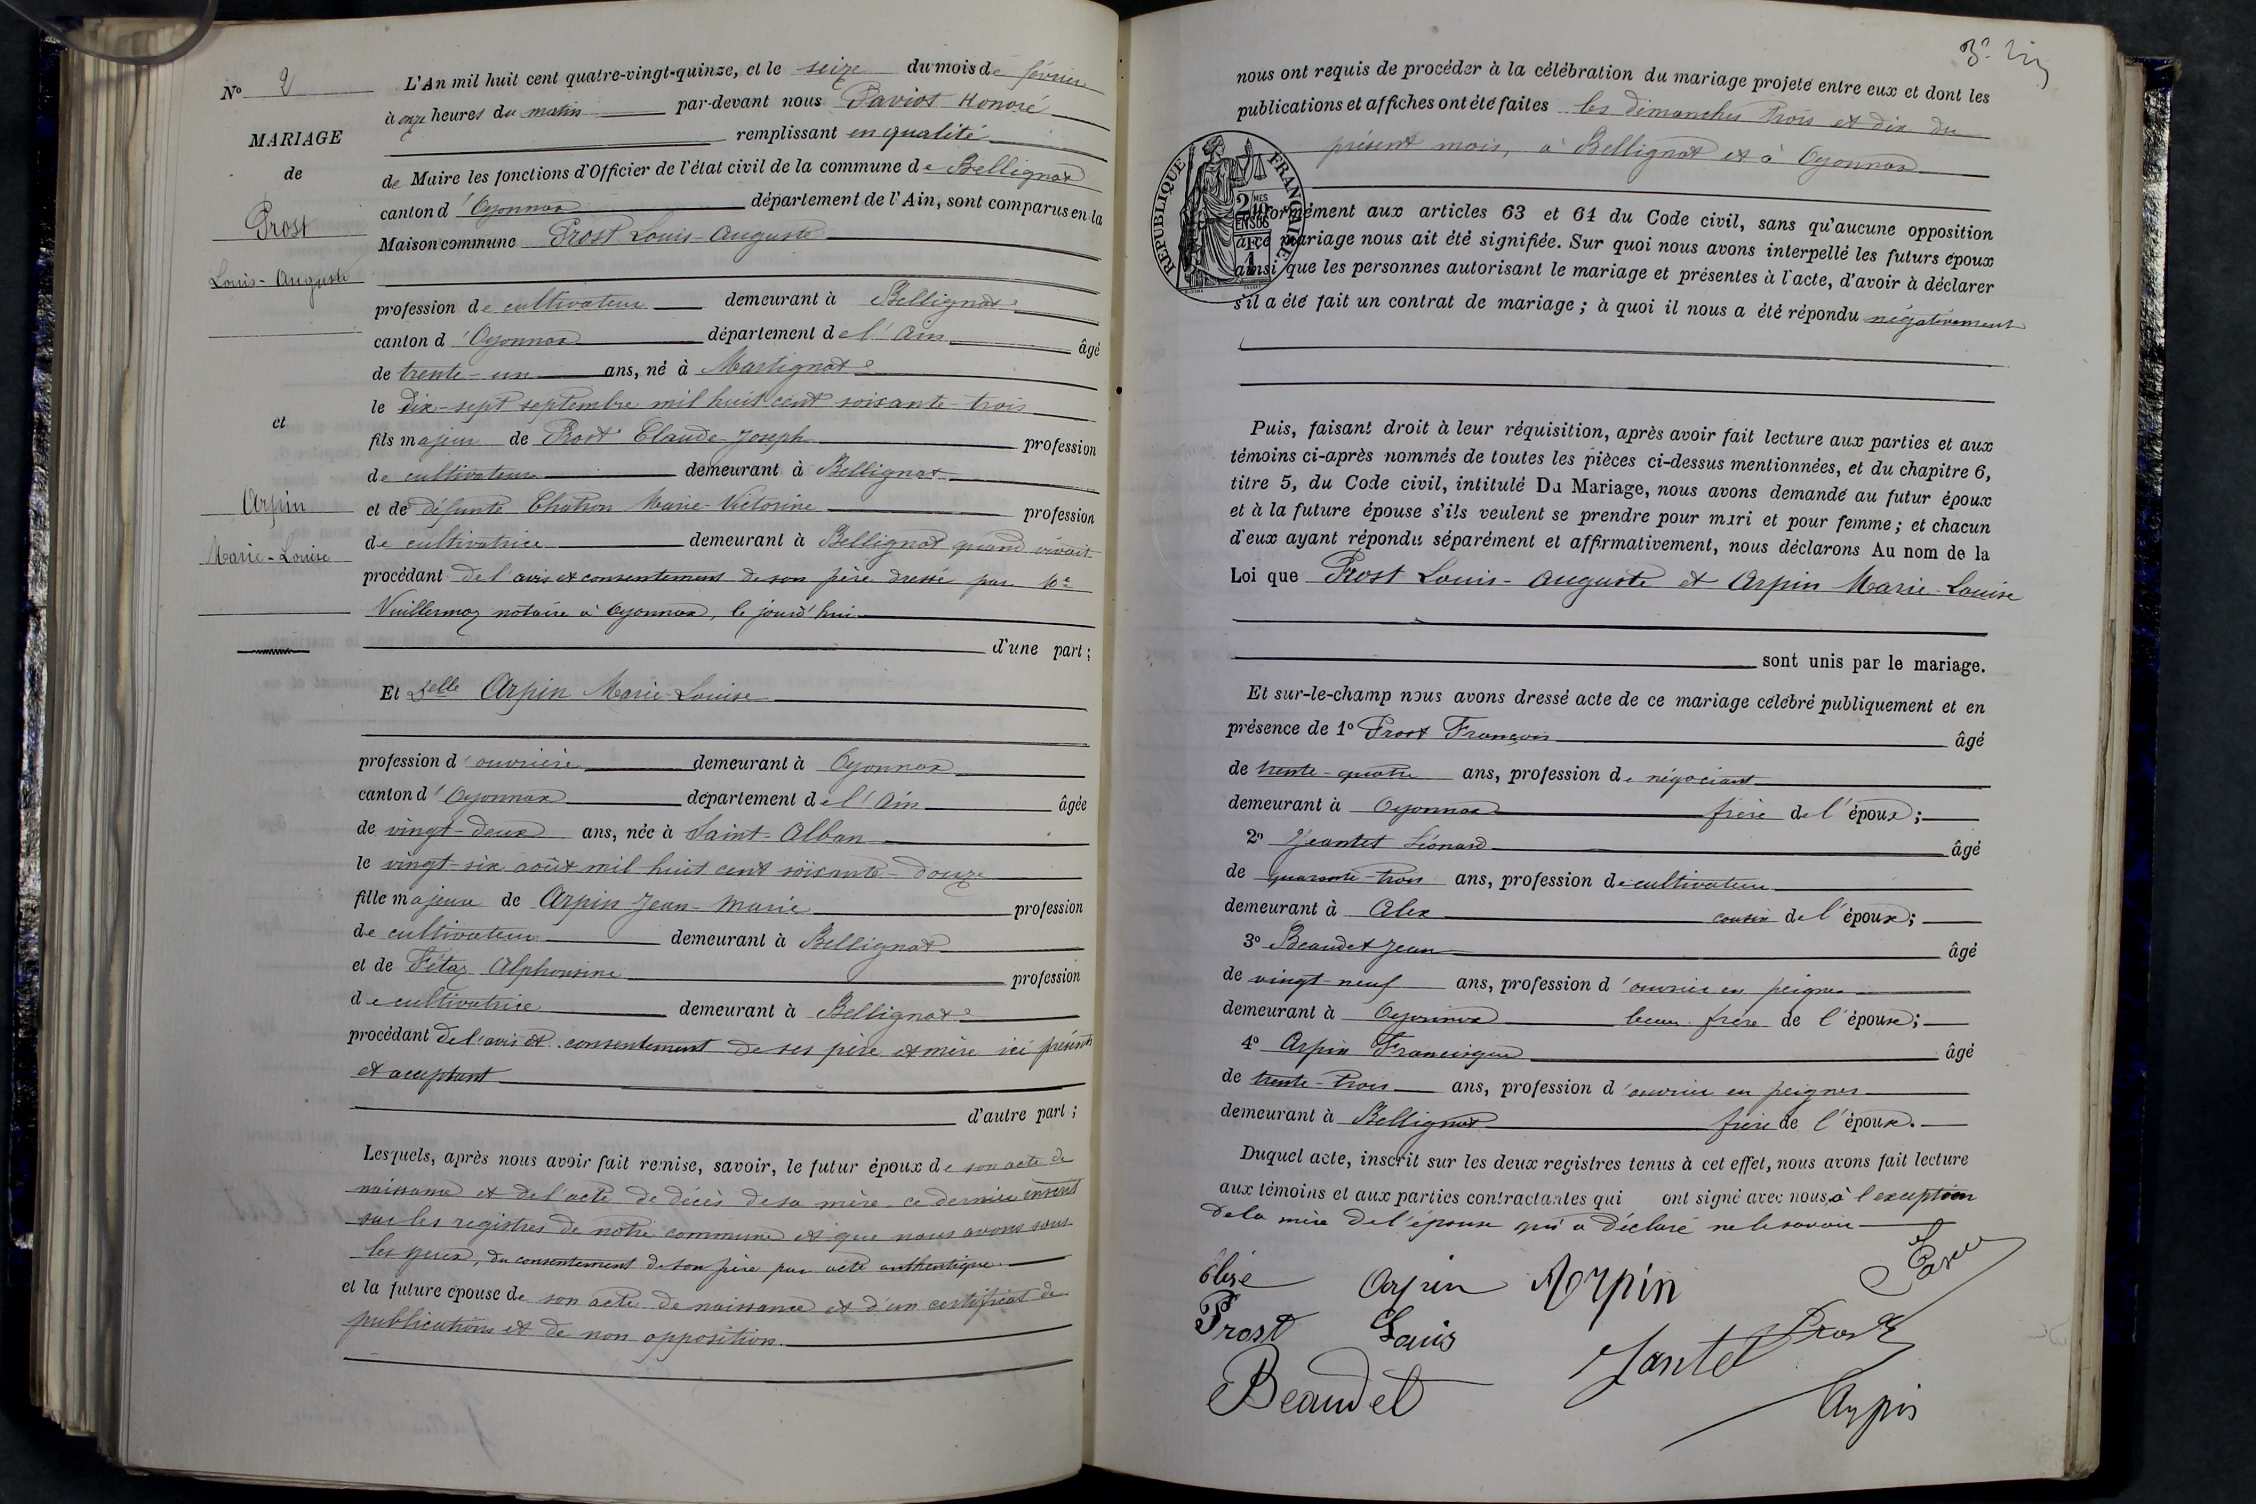 N° 2
MARIAGE
de
Prost
Louis-Auguste
et
Arpin
Marie-Louise
L'An mil huit cent quatre-vingt-quinze, et le seize du mois de février
à onze heures du matin par-devant nous Paviot Honoré
remplissant en qualité
de Maire les fonctions d'Officier de l'état civil de la commune de Bellignat
canton d'Oyonnax département de l'Ain, sont comparus en la
Maison commune Prost Louis-Auguste
profession de cultivateur demeurant à Bellignat
canton d'Oyonnax département de l'Ain âgé
de trente-un ans, né à Martignat
le dix-sept septembre mil huit cent soixante-trois
fils majeur de Prost Claude-Joseph profession
de cultivateur demeurant à Bellignat
et de défunte Chatron Marie-Victorine profession
de cultivatrice demeurant à Bellignat quand vivait
procédant de l'avis et consentement de son père dressé par Me
Vuillermoz notaire à Oyonnax, le jourd'hui
d'une part ;
Et Delle Arpin Marie-Louise
profession d'ouvrière demeurant à Oyonnax
canton d'Oyonnax département de l'Ain âgée
de vingt-deux ans, née à Saint-Alban
le vingt-six août mil huit cent soixante-douze
fille majeure de Arpin Jean-Marie profession
de cultivateur demeurant à Bellignat
et de Fétaz Alphonsine profession
de cultivatrice demeurant à Bellignat
procédant de l'avis et consentement de ses père et mère ici présents
et acceptant
d'autre part ;
Lesquels, après nous avoir fait remise, savoir, le futur époux de son acte de
naissance et de l'acte de décès de sa mère ce dernier inscrit
sur les registres de notre commune et que nous avons sous
les yeux, du consentement de son père par acte authentique
et la future épouse de son acte de naissance et d'un certificat de
publications et de non opposition
nous ont requis de procéder à la célébration du mariage projeté entre eux et dont les
publications et affiches ont été faites les dimanches trois et dix du
présent mois, à Bellignat et à Oyonnax
RÉPUBLIQUE FRANÇAISE
2/10 MES
EN SUS
1
conformément aux articles 63 et 64 du Code civil, sans qu'aucune opposition
à ce mariage nous ait été signifiée. Sur quoi nous avons interpellé les futurs époux
ainsi que les personnes autorisant le mariage et présentes à l'acte, d'avoir à déclarer
s'il a été fait un contrat de mariage ; à quoi il nous a été répondu négativement
Puis, faisant droit à leur réquisition, après avoir fait lecture aux parties et aux
témoins ci-après nommés de toutes les pièces ci-dessus mentionnées, et du chapitre 6,
titre 5, du Code civil, intitulé Du Mariage, nous avons demandé au futur époux
et à la future épouse s'ils veulent se prendre pour mari et pour femme ; et chacun
d'eux ayant répondu séparément et affirmativement, nous déclarons Au nom de la
Loi que Prost Louis-Auguste et Arpin Marie-Louise
sont unis par le mariage.
Et sur-le-champ nous avons dressé acte de ce mariage célébré publiquement et en
présence de 1° Prost François âgé
de trente-quatre ans, profession de négociant
demeurant à Oyonnax frère de l'époux ;
2° Jeantet Léonard âgé
de quarante-trois ans, profession de cultivateur
demeurant à Alex cousin de l'époux ;
3° Beaudet Jean âgé
de vingt-neuf ans, profession d'ouvrier en peignes
demeurant à Oyonnax beau-frère de l'épouse ;
4° Arpin Francisque âgé
de trente-trois ans, profession d'ouvrier en peignes
demeurant à Bellignat frère de l'épouse.
Duquel acte, inscrit sur les deux registres tenus à cet effet, nous avons fait lecture
aux témoins et aux parties contractantes qui ont signé avec nous, à l'exception
de la mère de l'épouse qui a déclaré ne le savoir
Arpin Arpin
Prost Louis
Jantet Prost
Beaudet
Arpin